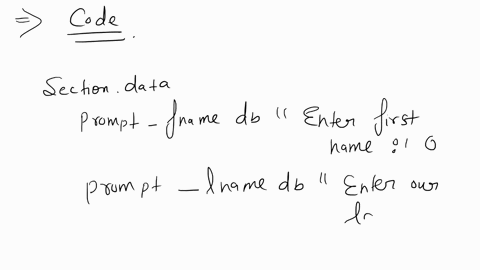 ⇒ Code.
Section.data
prompt_fname db " Enter first
name :' 0
prompt_lname db " Enter our